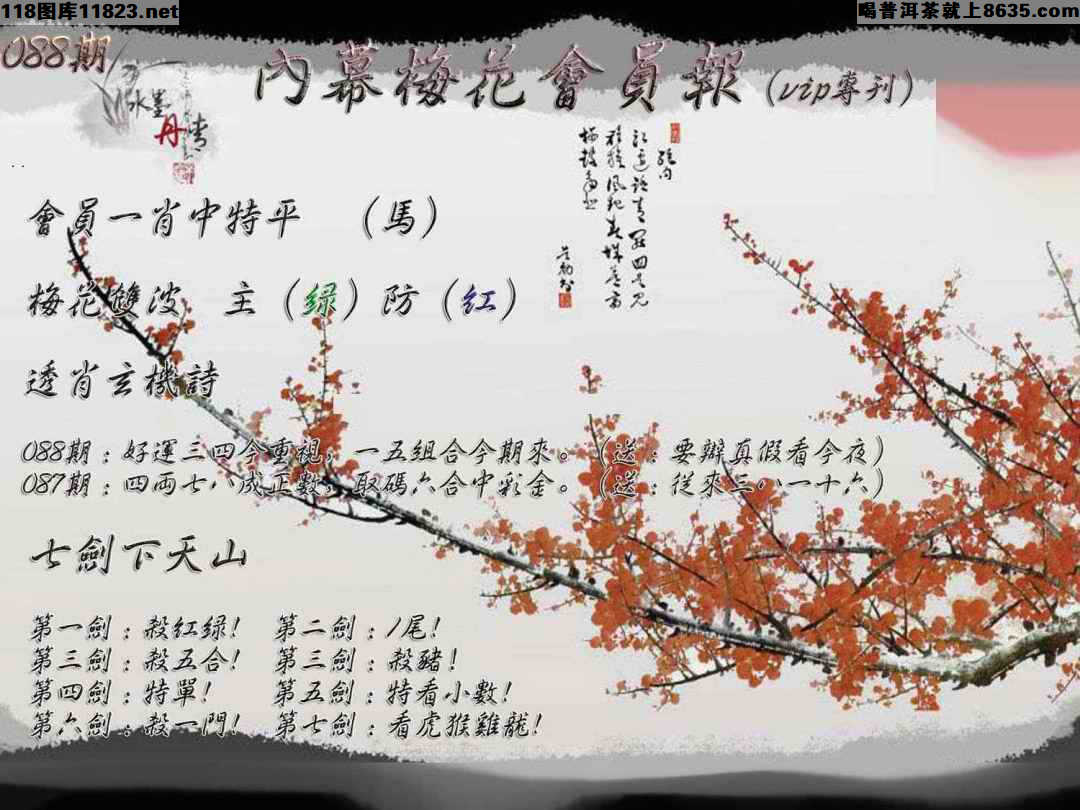 118图库11823.net
喝普洱茶就上8635.com
088期
內幕梅花會員報（vip專刊）
水墨
丹青
會員一肖中特平 （馬）
梅花雙波 主（绿）防（红）
透肖玄機詩
088期：好運三四今重視，一五組合今期來。（送：要辦真假看今夜）
087期：四両七八成正數，取碼六合中彩金。（送：從來三八一十六）
七劍下天山
第一劍：殺红绿！ 第二劍：1尾！
第三劍：殺五合！ 第三劍：殺豬！
第四劍：特單！ 第五劍：特看小數！
第六劍：殺一門！ 第七劍：看虎猴雞龍！